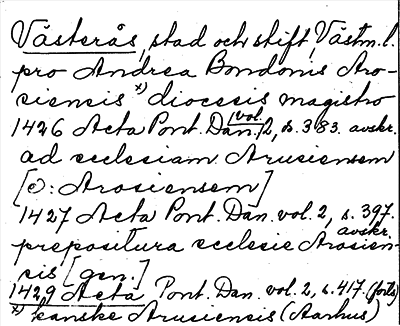 Västerås, stad och stift, Västm. l.
pro Andrea Bondonis Aro-
siensis x) diocesis magistro
1426 Acta Pont. Dan. vol. 2, s. 383. avskr.
ad ecclesiam Arusiensem
[ɔ: Arosiensem]
1427 Acta Pont. Dan. vol. 2, s. 397. avskr.
prepositura ecclesie Arosien-
sis [gen.]
1429 Acta Pont. Dan. vol. 2, s. 417. (forts)
x) kanske Arusiensis (Aarhus)